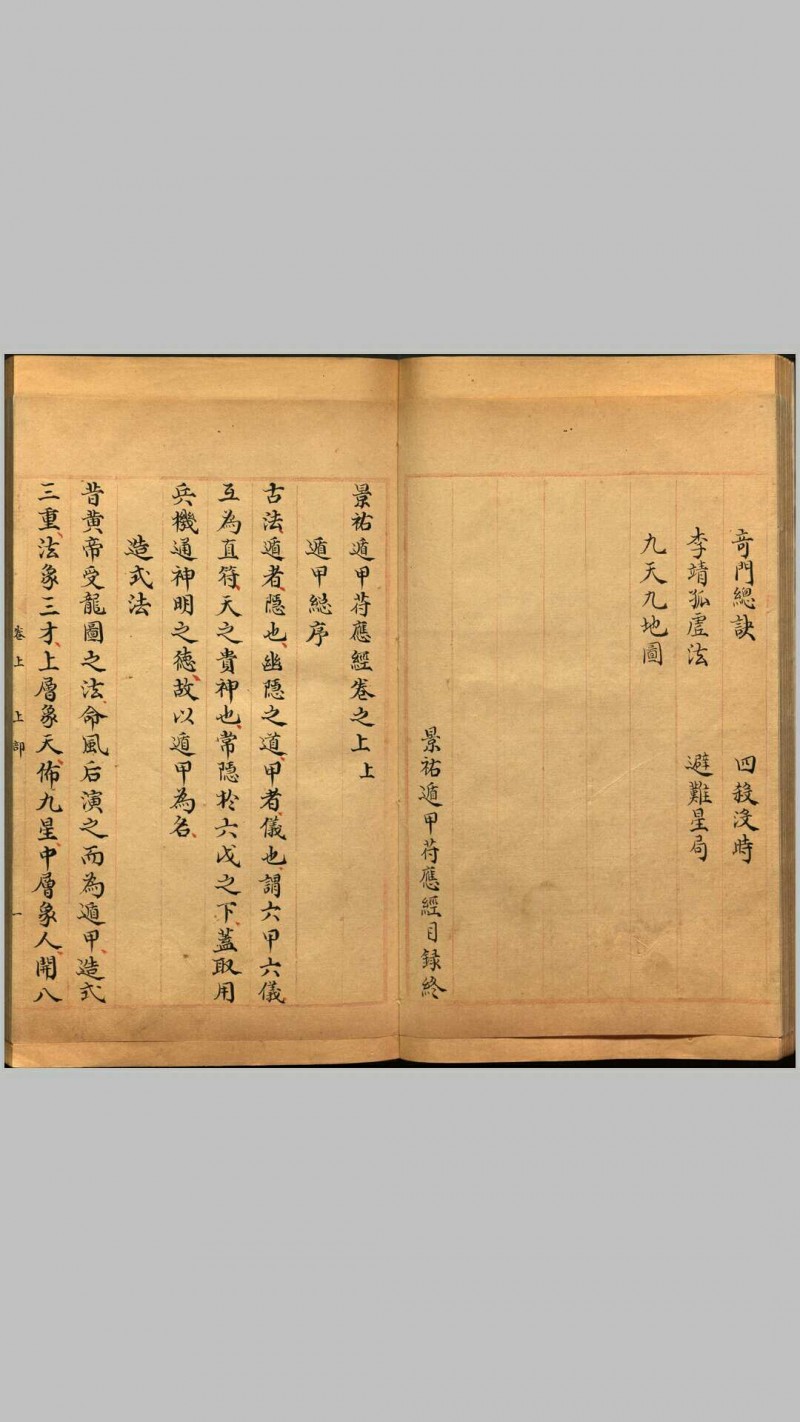 奇門總訣　四殺没時
李靖孤虛法　避難星局
九天九地圖
景祐遁甲苻應經目録終
景祐遁甲苻應經卷之上上
遁甲総序
古法、遁者、隠也、幽隠之道、甲者、儀也、謂六甲六儀
互為直符、天之貴神也、常隠扵六戊之下、蓋取用
兵機通神明之德、故以遁甲為名、
造式法
昔黄帝受龍圖之法、命風后演之而為遁甲、造式
三重、法象三才、上層象天、佈九星、中層象人、開八
卷上　上部　一